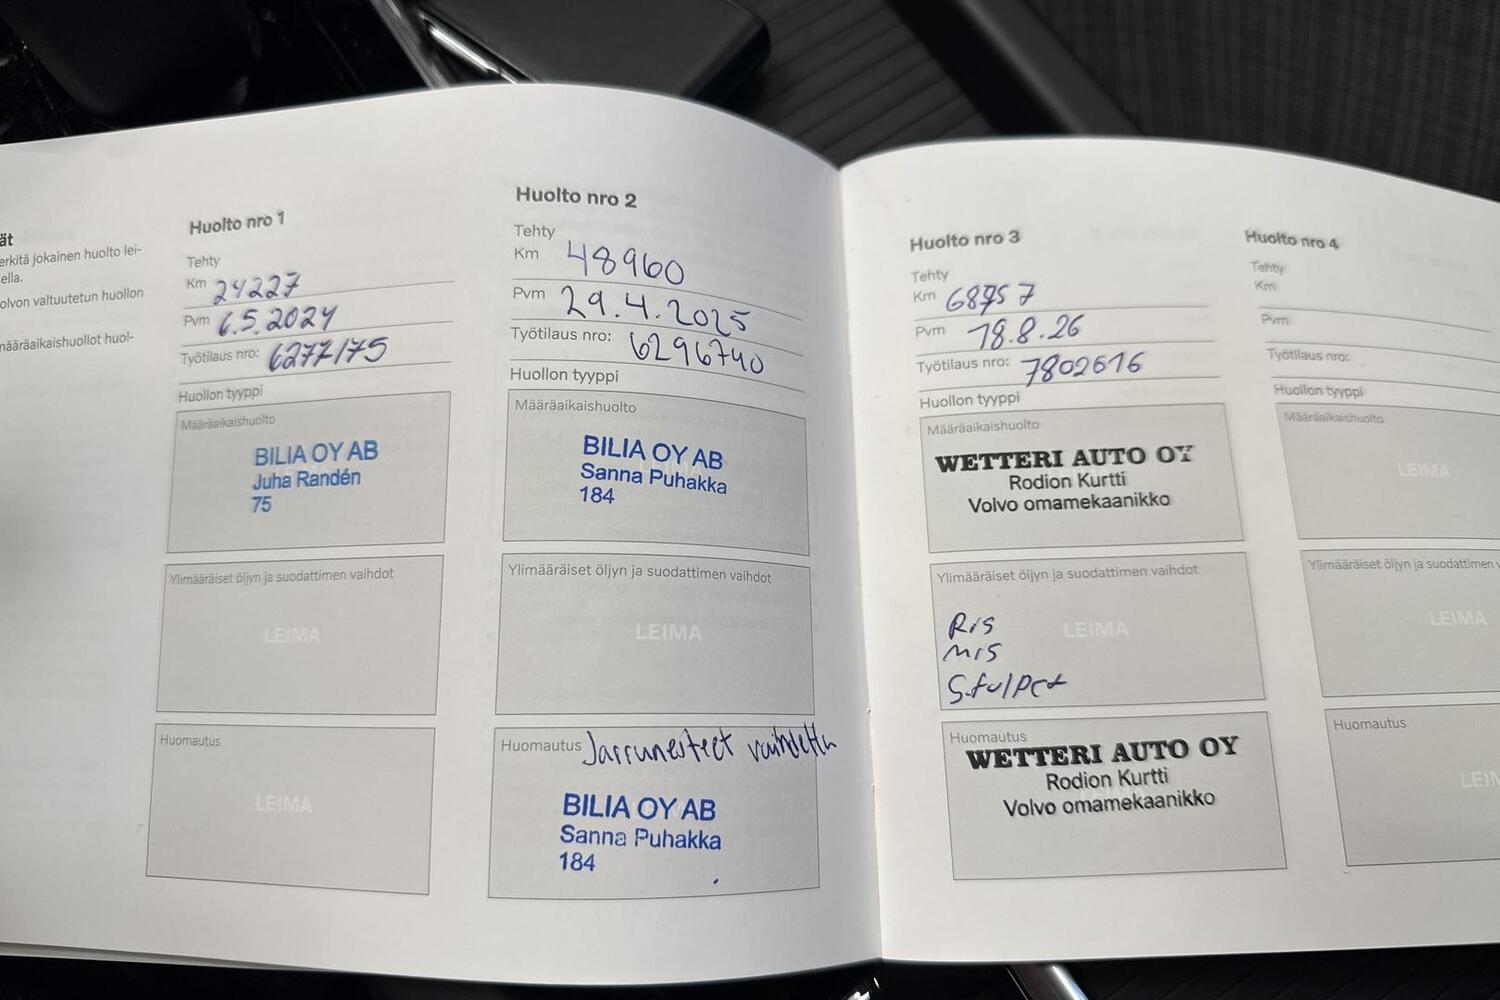 ät
erkitä jokainen huolto lei-
sella.
olvon valtuutetun huollon
määräaikaishuollot huol-
Huolto nro 1
Tehty
Km 24227
Pvm 6.5.2024
Työtilaus nro: 6277175
Huollon tyyppi
Määräaikaishuolto
BILIA OY AB
Juha Randén
75
Ylimääräiset öljyn ja suodattimen vaihdot
LEIMA
Huomautus
LEIMA
Huolto nro 2
Tehty
Km 48960
Pvm 29.4.2025
Työtilaus nro: 6296740
Huollon tyyppi
Määräaikaishuolto
BILIA OY AB
Sanna Puhakka
184
Ylimääräiset öljyn ja suodattimen vaihdot
LEIMA
Huomautus Jarrunesteet vaihdettu
BILIA OY AB
Sanna Puhakka
184
Huolto nro 3
Tehty
Km
Pvm 18.8.26
Työtilaus nro: 7802616
Huollon tyyppi
Määräaikaishuolto
WETTERI AUTO OY
Rodion Kurtti
Volvo omamekaanikko
Ylimääräiset öljyn ja suodattimen vaihdot
LEIMA
Ris
Mis
Huomautus
WETTERI AUTO OY
Rodion Kurtti
Volvo omamekaanikko
Huolto nro 4
Tehty
Km
Pvm
Työtilaus nro:
Huollon tyyppi
Määräaikaishuolto
LEIMA
Ylimääräiset öljyn ja suodattimen v
LEIMA
Huomautus
LEIM